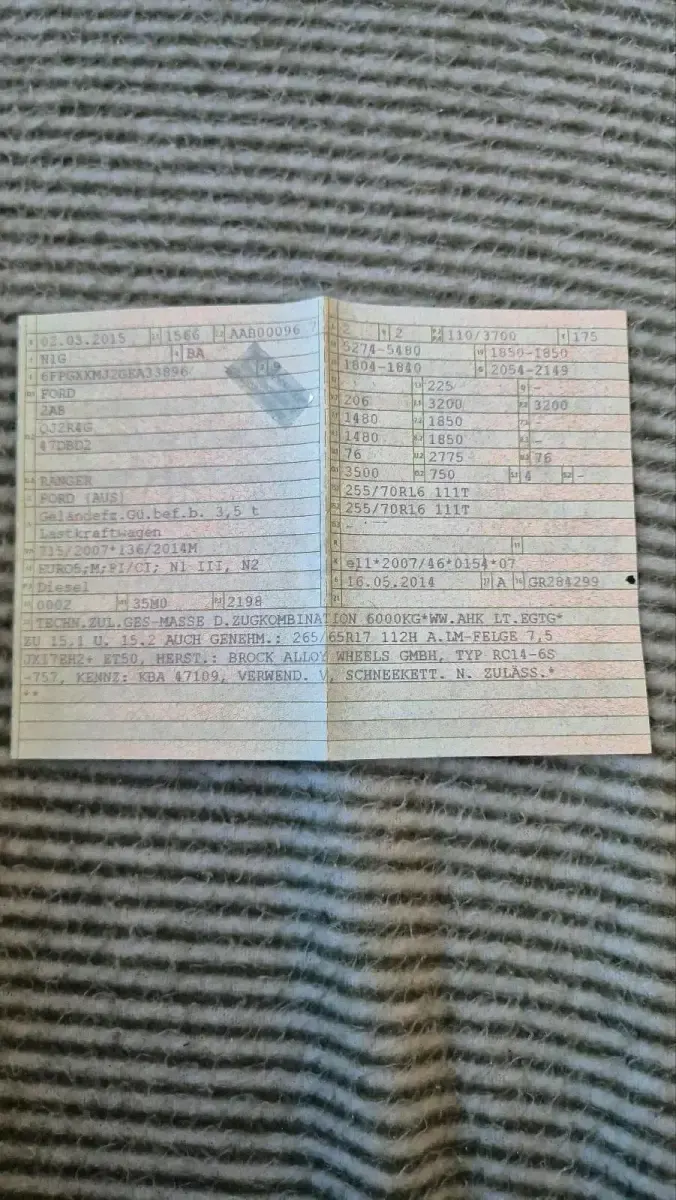 02.03.2015 1566 AAB00096 7
N1G BA
6FPGXXMJ2GEA33896 9
FORD
2AB
QJ2R4G
47DBD2
RANGER
FORD (AUS)
Geländefz.Gü.bef.b. 3,5 t
Lastkraftwagen
715/2007*136/2014M
EURO5;M;PI/CI; N1 III, N2
Diesel
0002 35M0 2198
2 2 110/3700 175
5274-5480 1850-1850
1804-1840 2054-2149
225 -
206 3200 3200
1480 1850 -
1480 1850 -
76 2775 76
3500 750 4 -
255/70R16 111T
255/70R16 111T
-
e11*2007/46*0154*07
16.05.2014 A GR284299
TECHN.ZUL.GES-MASSE D.ZUGKOMBINATION 6000KG*WW.AHK LT.EGTG*
ZU 15.1 U. 15.2 AUCH GENEHM.: 265/65R17 112H A.LM-FELGE 7,5
JX17EH2+ ET50, HERST.: BROCK ALLOY WHEELS GMBH, TYP RC14-6S
-757, KENNZ: KBA 47109, VERWEND. V. SCHNEEKETT. N. ZULÄSS.*
**